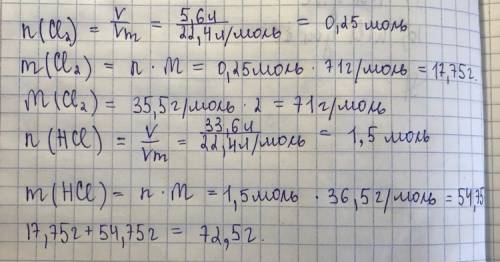 n(Cl₂) = V/Vm = 5,6л/22,4л/моль = 0,25 моль
m(Cl₂) = n · M = 0,25моль · 71г/моль = 17,75г.
M(Cl₂) = 35,5г/моль · 2 = 71г/моль
n(HCl) = V/Vm = 33,6л/22,4л/моль = 1,5 моль
m(HCl) = n · M = 1,5моль · 36,5г/моль = 54,75
17,75г + 54,75г = 72,5г.